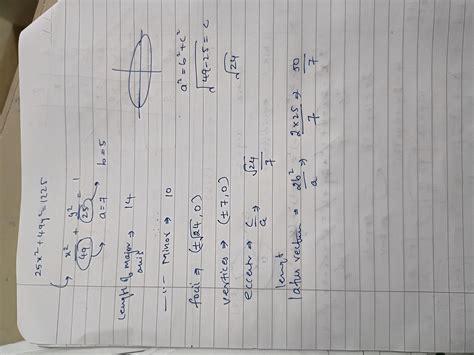 25x² + 49y² = 1225
x²/49 + y²/25 = 1
a=7 b=5
length of major axis → 14
—"— Minor → 10
foci → (±√24, 0)
vertices → (±7, 0)
eccentr → c/a → √24/7
lengt
latus rectum → 2b²/a → 2×25/7 → 50/7
a² = b² + c²
√49-25 = c
√24